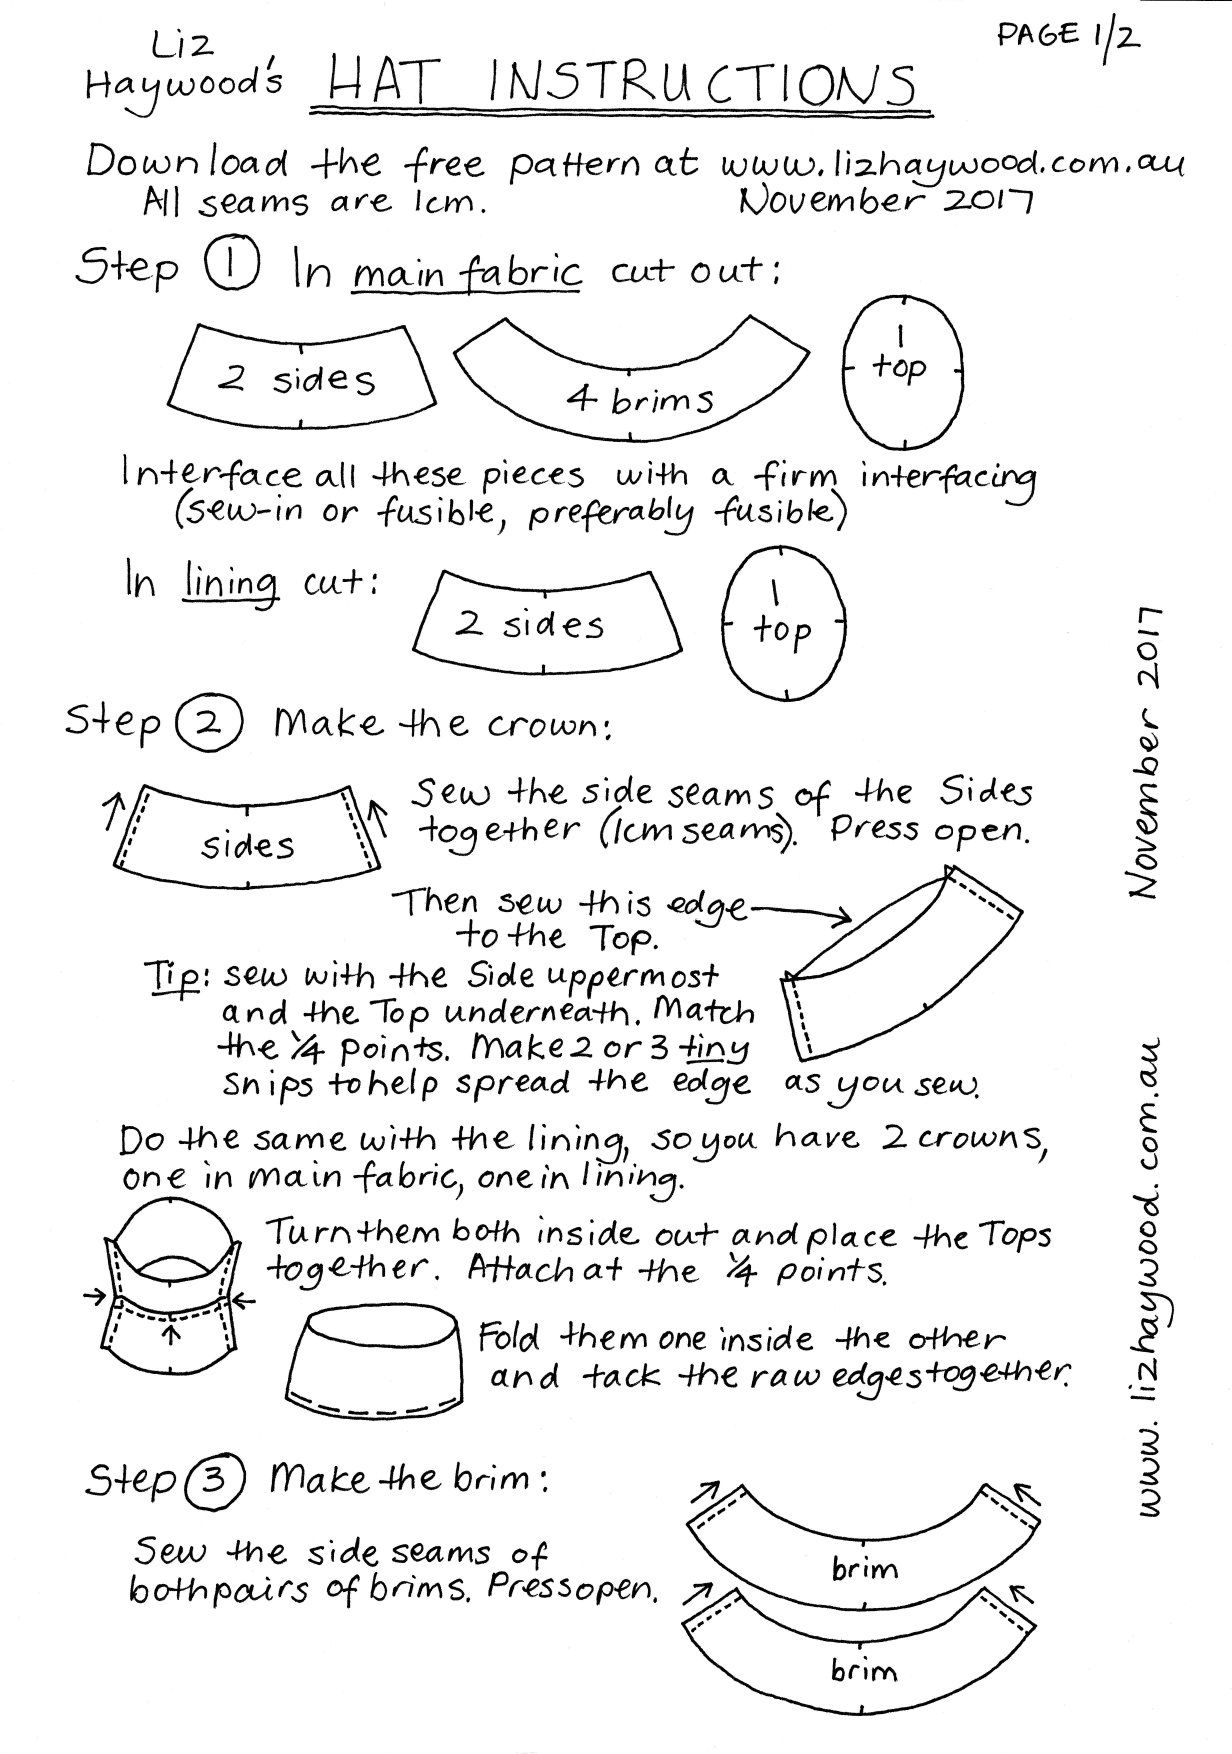 PAGE 1/2
Liz
Haywood's HAT INSTRUCTIONS
Download the free pattern at www.lizhaywood.com.au
All seams are 1cm. November 2017
Step 1 In main fabric cut out:
2 sides
4 brims
1
top
Interface all these pieces with a firm interfacing
(sew-in or fusible, preferably fusible)
In lining cut:
2 sides
1
top
Step 2 Make the crown:
sides
Sew the side seams of the Sides
together (1cm seams). Press open.
Then sew this edge
to the Top.
Tip: sew with the Side uppermost
and the Top underneath. Match
the 1/4 points. Make 2 or 3 tiny
snips to help spread the edge as you sew.
Do the same with the lining, so you have 2 crowns,
one in main fabric, one in lining.
Turn them both inside out and place the Tops
together. Attach at the 1/4 points.
Fold them one inside the other
and tack the raw edges together.
Step 3 Make the brim:
Sew the side seams of
both pairs of brims. Press open.
brim
brim
www.lizhaywood.com.au November 2017